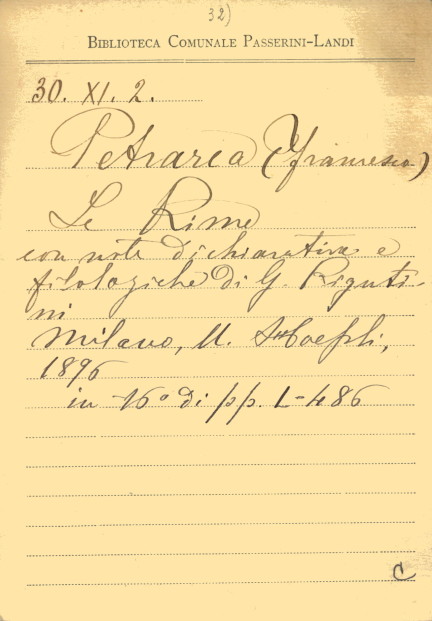 32)
BIBLIOTECA COMUNALE PASSERINI-LANDI
30. XI. 2.
Petrarca (Francesco)
Le Rime
con note dichiarative e
filologiche di G. Riguti-
ni
Milano, U. Hoepli,
1896
in 16º di pp. L-486
C